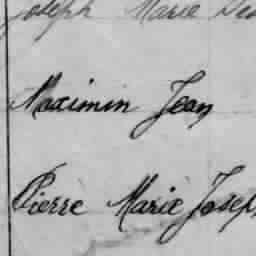 Joseph Marie
Maximin Jean
Pierre Marie Joseph